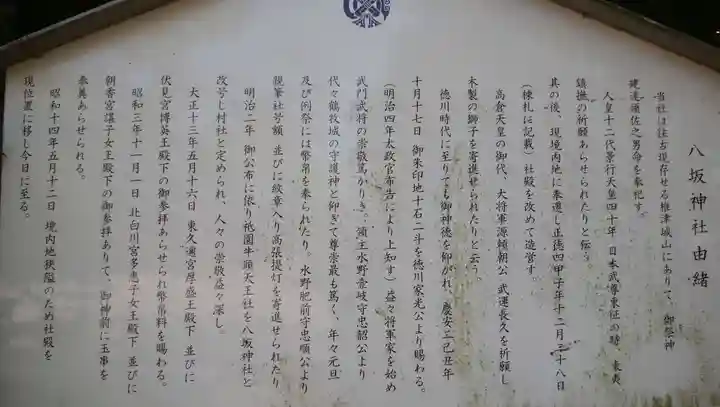 八坂神社由緒
当社は往古現存せる椎津城山にありて、御祭神
建速須佐之男命を奉祀す。
人皇十二代景行天皇四十年、日本武尊東征の時、東夷
鎮撫の祈願あらせられたりと伝う。
其の後、現境内地に奉遷し正徳四甲子年十二月二十八日
（棟札に記載）社殿を改めて造営す。
高倉天皇の御代、大将軍源頼朝公 武運長久を祈願し
木製の獅子を寄進せられたりと云う。
徳川時代に至りても御神徳を仰がれ、慶安二己丑年
十月十七日 御朱印地十石二斗を徳川家光公より賜わる。
（明治四年太政官布告により上知す）益々将軍家を始め
武門武将の崇敬篤かりき。領主水野壹岐守忠韶公より
代々鶴牧城の守護神と仰ぎて尊崇最も篤く、年々元旦
及び例祭には幣帛を奉られたり。水野肥前守忠順公より
親筆社号額 並びに紋章入り高張提灯を寄進せられたり
明治二年 御公布に依り祇園牛頭天王社を八坂神社と
改号し村社と定められ、人々の崇敬益々深し。
大正十三年五月十六日 東久邇宮厚盛王殿下 並びに
伏見宮博英王殿下の御参拝あらせられ幣帛料を賜わる。
昭和三年十一月一日 北白川宮多恵子女王殿下 並びに
朝香宮湛子女王殿下の御参拝ありて、御神前に玉串を
奉奠あらせられる。
昭和十四年五月十二日 境内地狭隘のため社殿を
現位置に移し今日に至る。